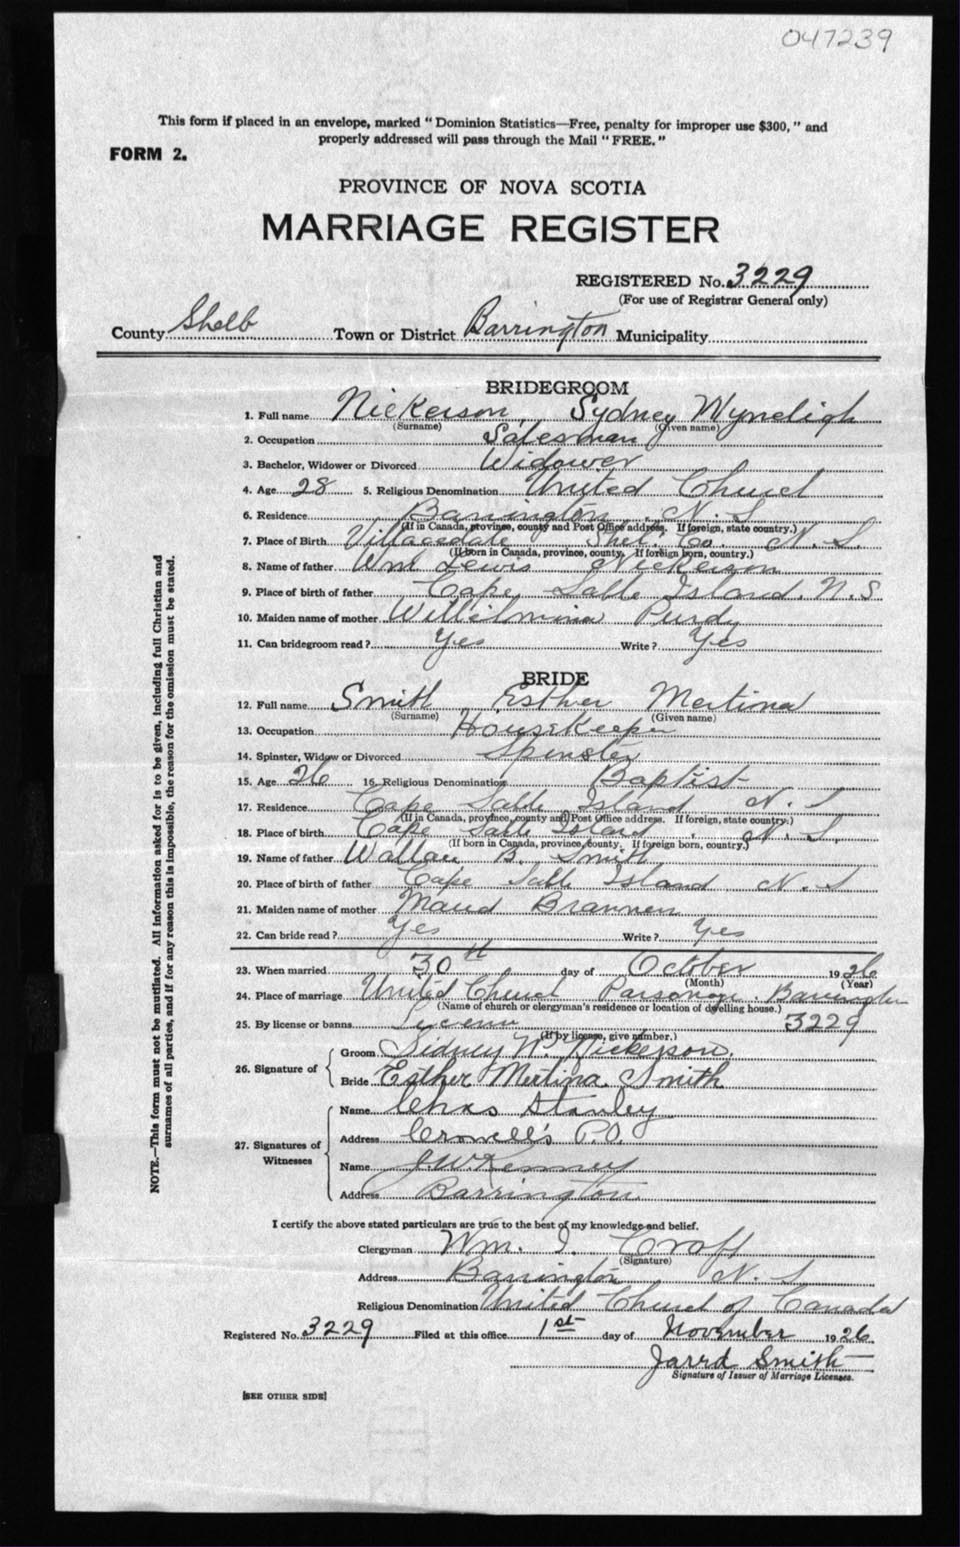 047239
This form if placed in an envelope, marked "Dominion Statistics—Free, penalty for improper use $300," and
properly addressed will pass through the Mail "FREE."
FORM 2.
PROVINCE OF NOVA SCOTIA
MARRIAGE REGISTER
REGISTERED No. 3229
(For use of Registrar General only)
County Shelb Town or District Barrington Municipality
BRIDEGROOM
1. Full name Nickerson Sydney Wyneligh
(Surname) (Given name)
2. Occupation Salesman
3. Bachelor, Widower or Divorced Widower
4. Age 28 5. Religious Denomination United Church
6. Residence Barrington, N. S
(If in Canada, province, county and Post Office address. If foreign, state country.)
7. Place of Birth Villagedale Shel. Co. N. S.
(If born in Canada, province, county. If foreign born, country.)
8. Name of father Wm Lewis Nickerson
9. Place of birth of father Cape Sable Island. N. S
10. Maiden name of mother Willilmina Purdy
11. Can bridegroom read? Yes Write? Yes
BRIDE
12. Full name Smith Esther Mertina
(Surname) (Given name)
13. Occupation HouseKeeper
14. Spinster, Widow or Divorced Spinster
15. Age 26 16. Religious Denomination Baptist
17. Residence Cape Sable Island N. S
(If in Canada, province, county and Post Office address. If foreign, state country.)
18. Place of birth Cape Sable Island, N. S.
(If born in Canada, province, county. If foreign born, country.)
19. Name of father Wallace B. Smith
20. Place of birth of father Cape Sable Island N. S
21. Maiden name of mother Maud Brannen
22. Can bride read? Yes Write? Yes
23. When married 30th day of October 1926
(Month) (Year)
24. Place of marriage United Church Parsonage Barrington
(Name of church or clergyman's residence or location of dwelling house.)
25. By license or banns 3229
(If by license, give number.)
26. Signature of
Groom Sidney W. Nickerson.
Bride Esther Mertina Smith
27. Signatures of Witnesses
Name Chas Stanley
Address Crowell's P.O.
Name J. W. Kenney
Address Barrington
I certify the above stated particulars are true to the best of my knowledge and belief.
Clergyman Wm. I. Croft
(Signature)
Address Barrington N. S
Religious Denomination United Church of Canada
Registered No. 3229 Filed at this office 1st day of November 1926
Jarrd Smith
Signature of Issuer of Marriage Licenses.
[SEE OTHER SIDE]
NOTE.—This form must not be mutilated. All information asked for is to be given, including full Christian and
surnames of all parties, and if for any reason this is impossible, the reason for the omission must be stated.